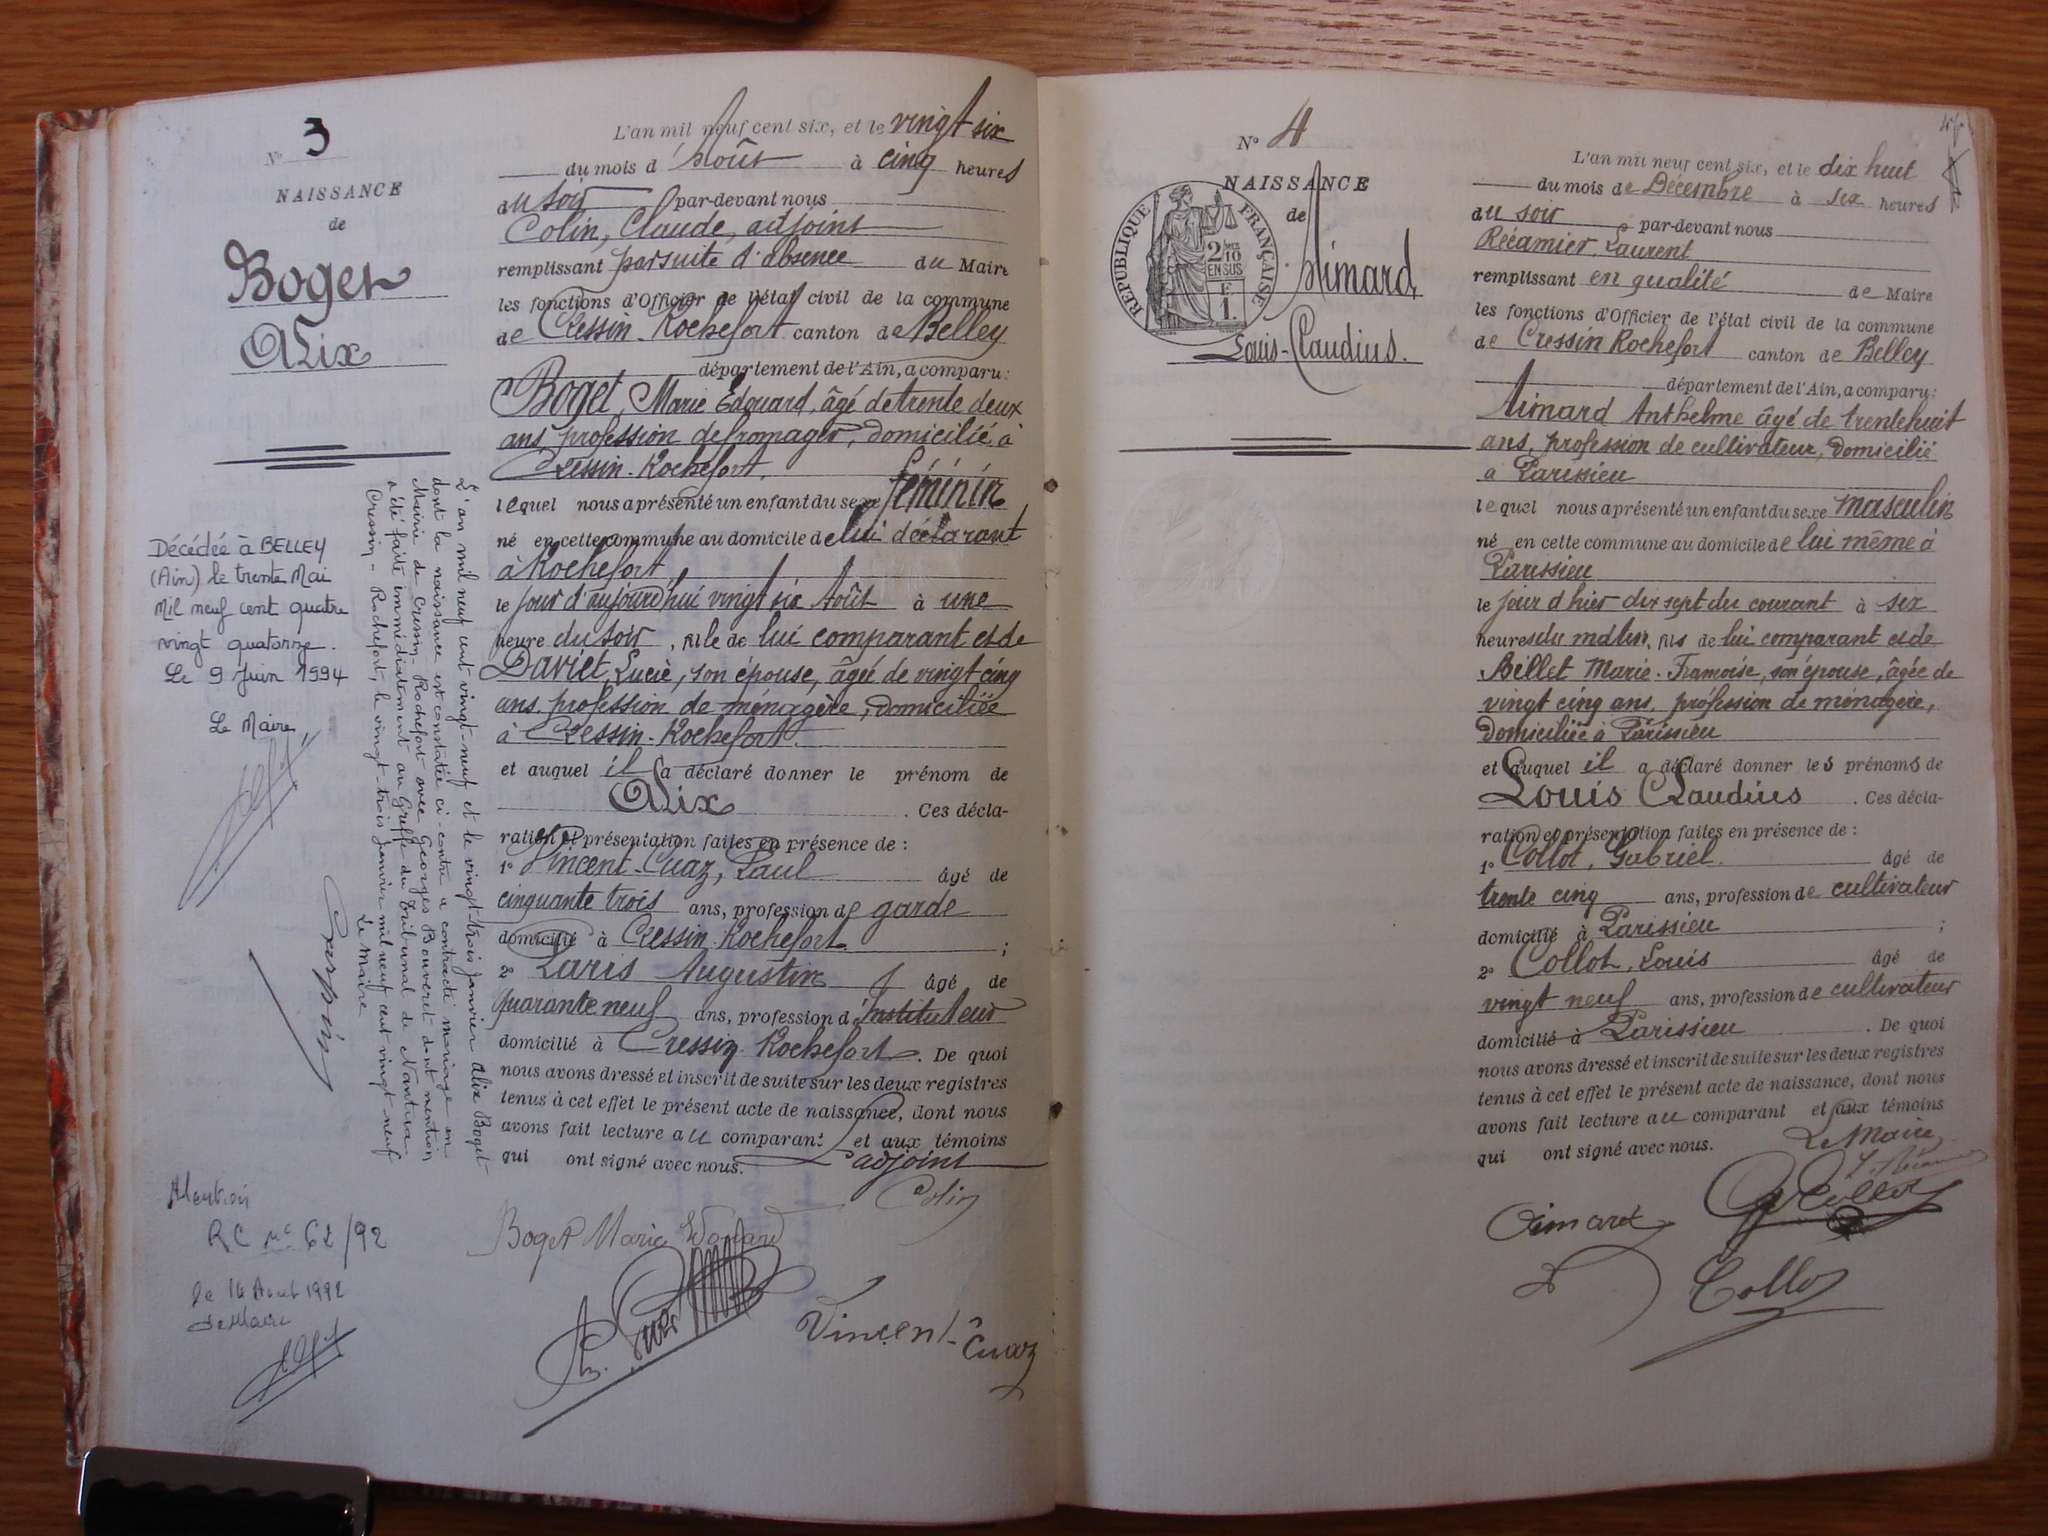 Nº 3
NAISSANCE
de
Boget
Alix
L'an mil neuf cent six, et le vingt six
du mois d'Août à cinq heures
du soir par-devant nous
Colin, Claude, adjoint
remplissant par suite d'absence du Maire
les fonctions d'Officier de l'état civil de la commune
de Cressin-Rochefort canton de Belley
département de l'Ain, a comparu:
Boget, Marie Edouard, âgé de trente deux
ans, profession de fromager, domicilié à
Cressin-Rochefort.
lequel nous a présenté un enfant du sexe féminin
né en cette commune au domicile de lui déclarant
à Rochefort
le jour d'aujourd'hui vingt six Août à une
heure du soir, fille de lui comparant et de
Daviet, Lucie, son épouse, âgée de vingt cinq
ans, profession de ménagère, domiciliée
à Cressin-Rochefort.
et auquel il a déclaré donner le prénom de
Alix . Ces décla-
ration et présentation faites en présence de :
1º Vincent-Cuaz, Paul âgé de
cinquante trois ans, profession de garde
domicilié à Cressin-Rochefort. ;
2º Paris Augustin âgé de
quarante neuf ans, profession d'Instituteur
domicilié à Cressin-Rochefort. De quoi
nous avons dressé et inscrit de suite sur les deux registres
tenus à cet effet le présent acte de naissance, dont nous
avons fait lecture au comparant et aux témoins
qui ont signé avec nous. L'adjoint
Colin
Boget Marie Edouard
Vincent-Cuaz
L'an mil neuf cent vingt-neuf et le vingt-trois janvier Alix Boget
dont la naissance est constatée ci-contre a contracté mariage en
Mairie de Cressin-Rochefort avec Georges Bouveret dont mention
a été faite immédiatement au Greffe du Tribunal de Nantua
Cressin-Rochefort, le vingt-trois janvier mil neuf cent vingt neuf
Le Maire
Décédée à BELLEY
(Ain) le trente Mai
Mil neuf cent quatre
vingt quatorze.
Le 9 Juin 1994
Le Maire,
Mention
RC nº 62/92
le 14 Aout 1992
Le Maire
Nº 4
NAISSANCE
de
Aimard
Louis-Claudius.
RÉPUBLIQUE FRANÇAISE
2/10
EN SUS
F
1.
L'an mil neuf cent six, et le dix huit
du mois de Décembre à six heures
du soir par-devant nous
Récamier, Laurent
remplissant en qualité de Maire
les fonctions d'Officier de l'état civil de la commune
de Cressin Rochefort canton de Belley
département de l'Ain, a comparu:
Aimard Anthelme âgé de trente huit
ans, profession de cultivateur, domicilié
à Parissieu
lequel nous a présenté un enfant du sexe masculin
né en cette commune au domicile de lui même à
Parissieu
le jour d'hier dix sept du courant à six
heures du matin, fils de lui comparant et de
Billet Marie-Françoise, son épouse, âgée de
vingt cinq ans, profession de ménagère,
domiciliée à Parissieu
et auquel il a déclaré donner les prénoms de
Louis Claudius . Ces décla-
ration et présentation faites en présence de :
1º Collot, Gabriel. âgé de
trente cinq ans, profession de cultivateur
domicilié à Parissieu ;
2º Collot, Louis âgé de
vingt neuf ans, profession de cultivateur
domicilié à Parissieu . De quoi
nous avons dressé et inscrit de suite sur les deux registres
tenus à cet effet le présent acte de naissance, dont nous
avons fait lecture au comparant et aux témoins
qui ont signé avec nous. Le Maire,
L. Récamier
G. Collot
Aimard
Collot